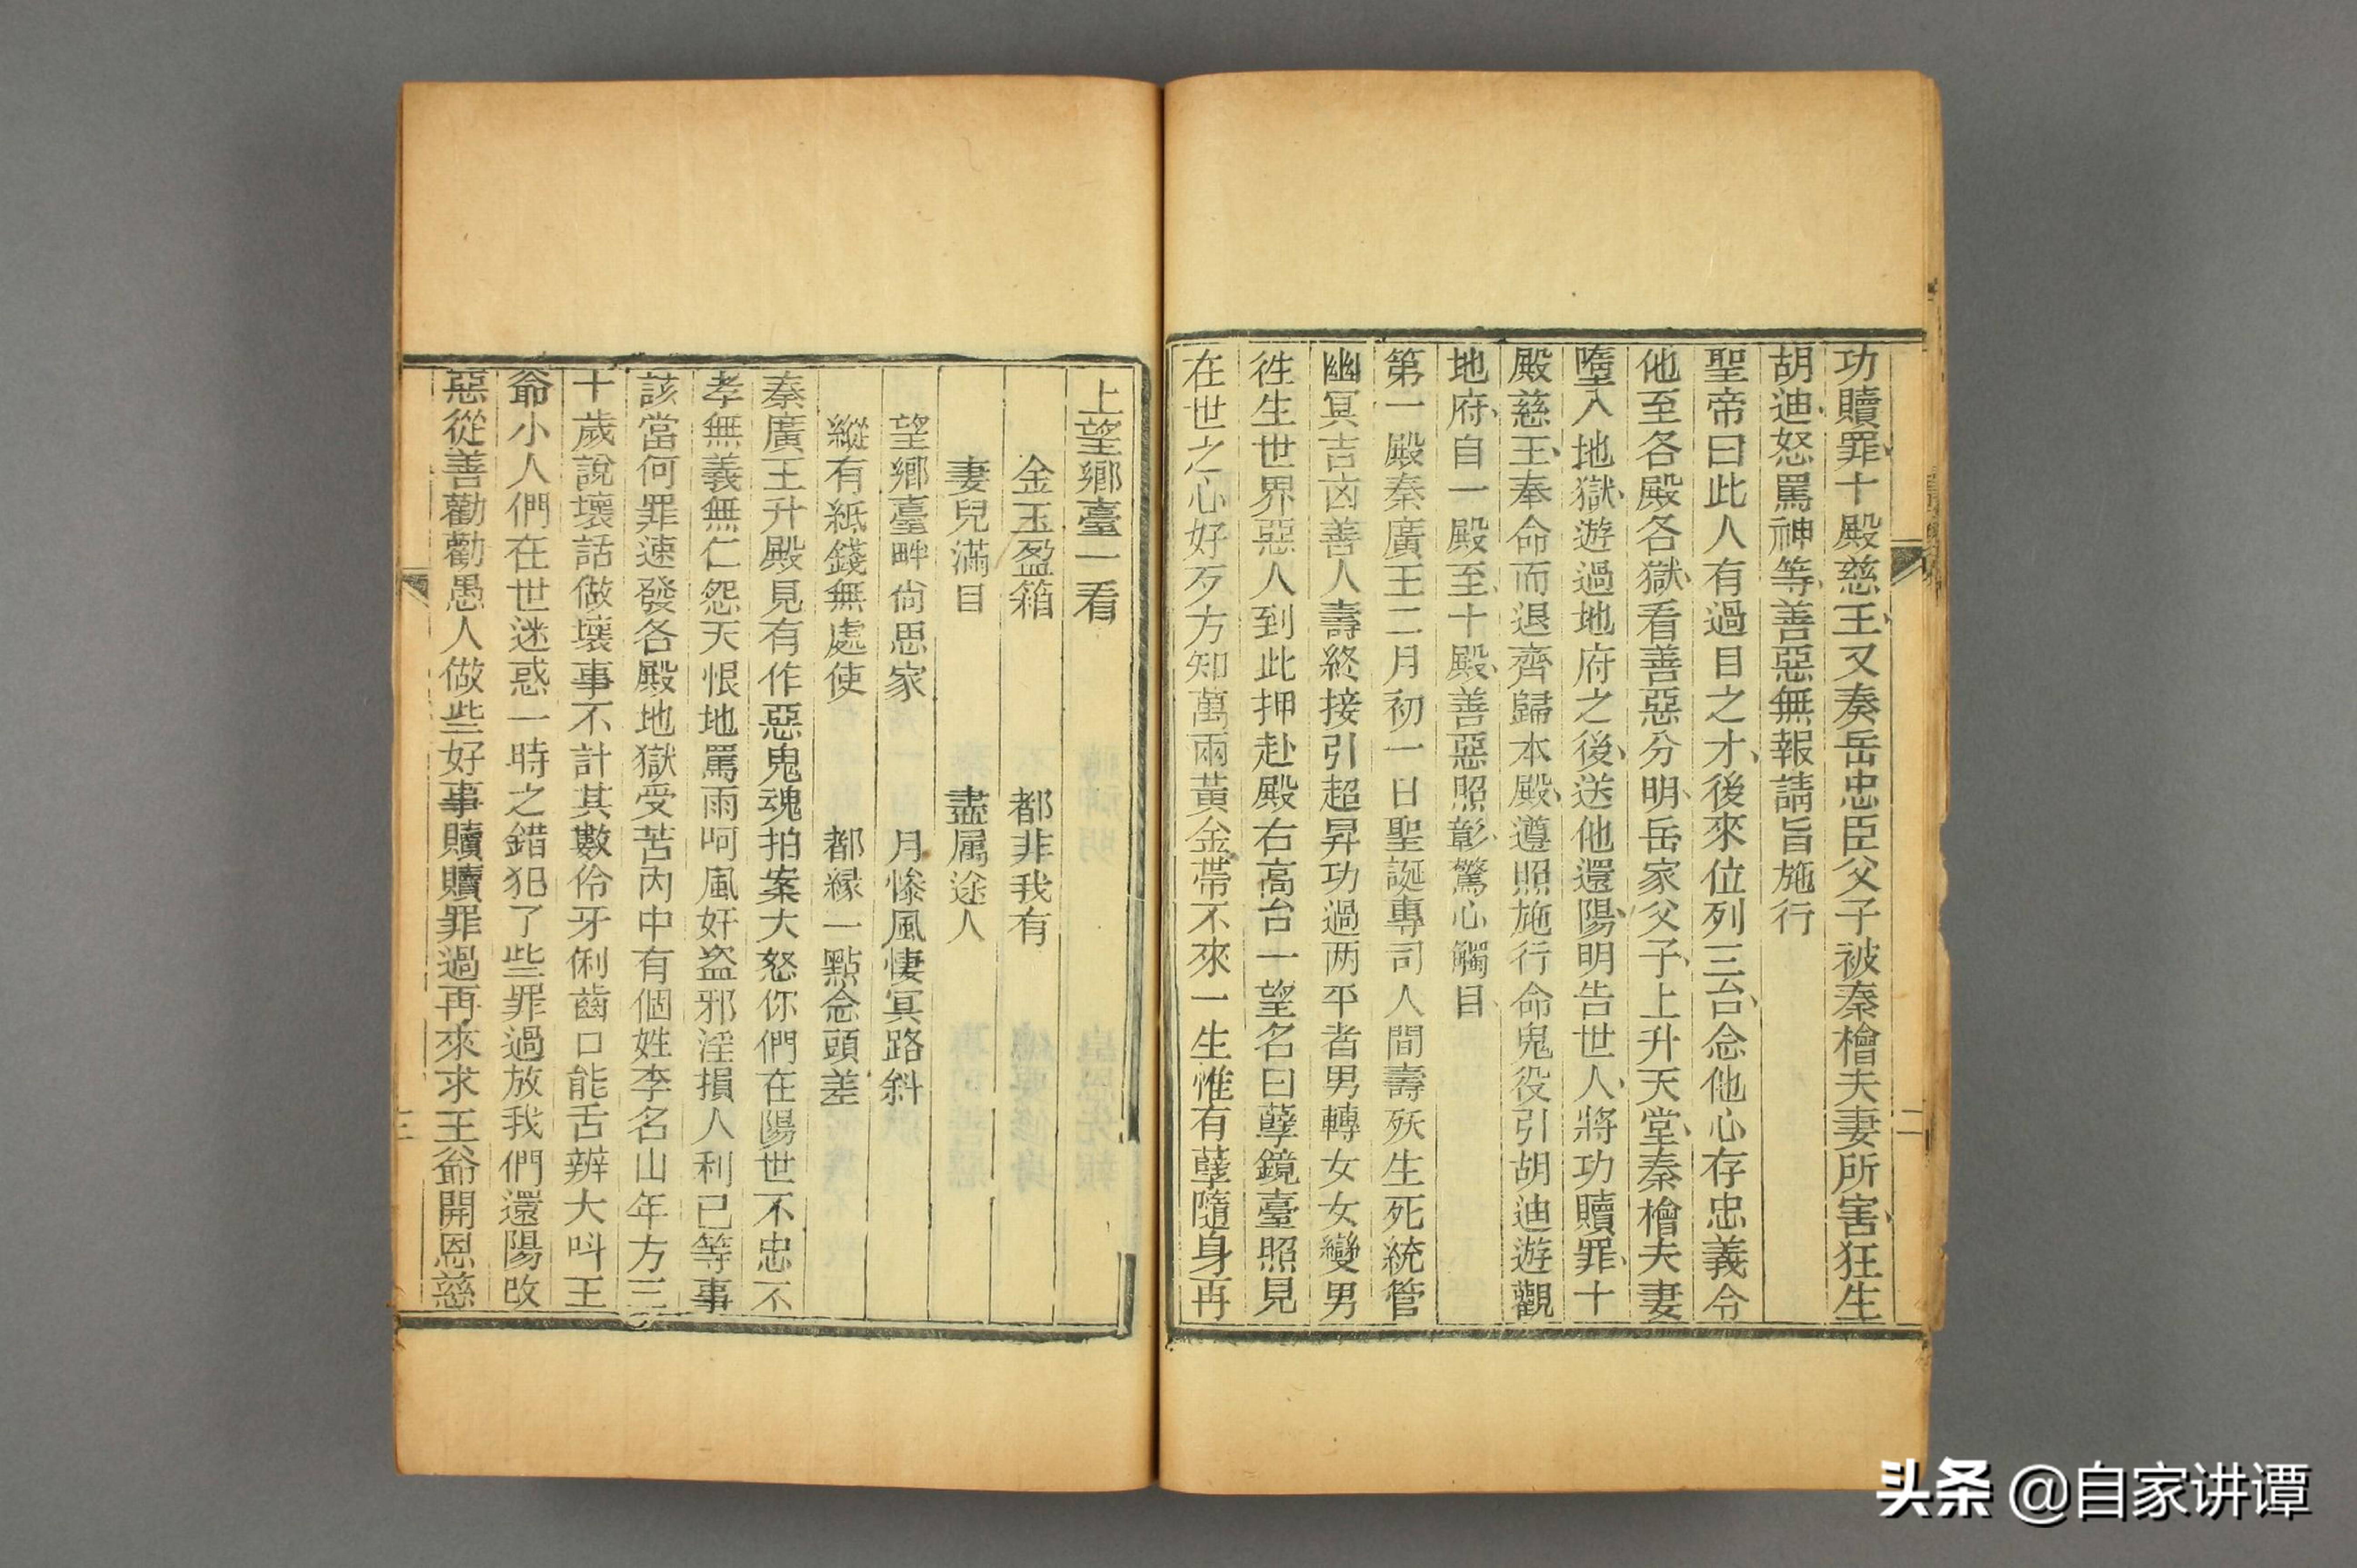 功贖罪十殿慈王又奏岳忠臣父子被秦檜夫妻所害狂生
胡迪怒罵神等善惡無報請旨施行
聖帝曰此人有過目之才後來位列三台念他心存忠義令
他至各殿各獄看善惡分明岳家父子上升天堂秦檜夫妻
墮入地獄遊過地府之後送他還陽明告世人將功贖罪十
殿慈王奉命而退齊歸本殿遵照施行命鬼役引胡迪遊觀
地府自一殿至十殿善惡照彰驚心觸目
第一殿秦廣王二月初一日聖誕專司人間壽殀生死統管
幽冥吉凶善人壽終接引超昇功過两平者男轉女女變男
徃生世界惡人到此押赴殿右高台一望名曰孽鏡臺照見
在世之心好歹方知萬兩黃金帶不來一生惟有孽隨身再
二
上望鄉臺一看
金玉盈箱 都非我有
妻兒滿目 盡属途人
望鄉臺畔尙思家 月慘風悽冥路斜
縱有紙錢無處使 都緣一點念頭差
秦廣王升殿見有作惡鬼魂拍案大怒你們在陽世不忠不
孝無義無仁怨天恨地罵雨呵風奸盗邪淫損人利已等事
該當何罪速發各殿地獄受苦內中有個姓李名山年方三
十歲說壞話做壞事不計其數伶牙俐齒口能舌辨大呌王
爺小人們在世迷惑一時之錯犯了些罪過放我們還陽改
惡從善勸勸愚人做些好事贖贖罪過再來求王爺開恩慈
三
头条 @自家讲谭